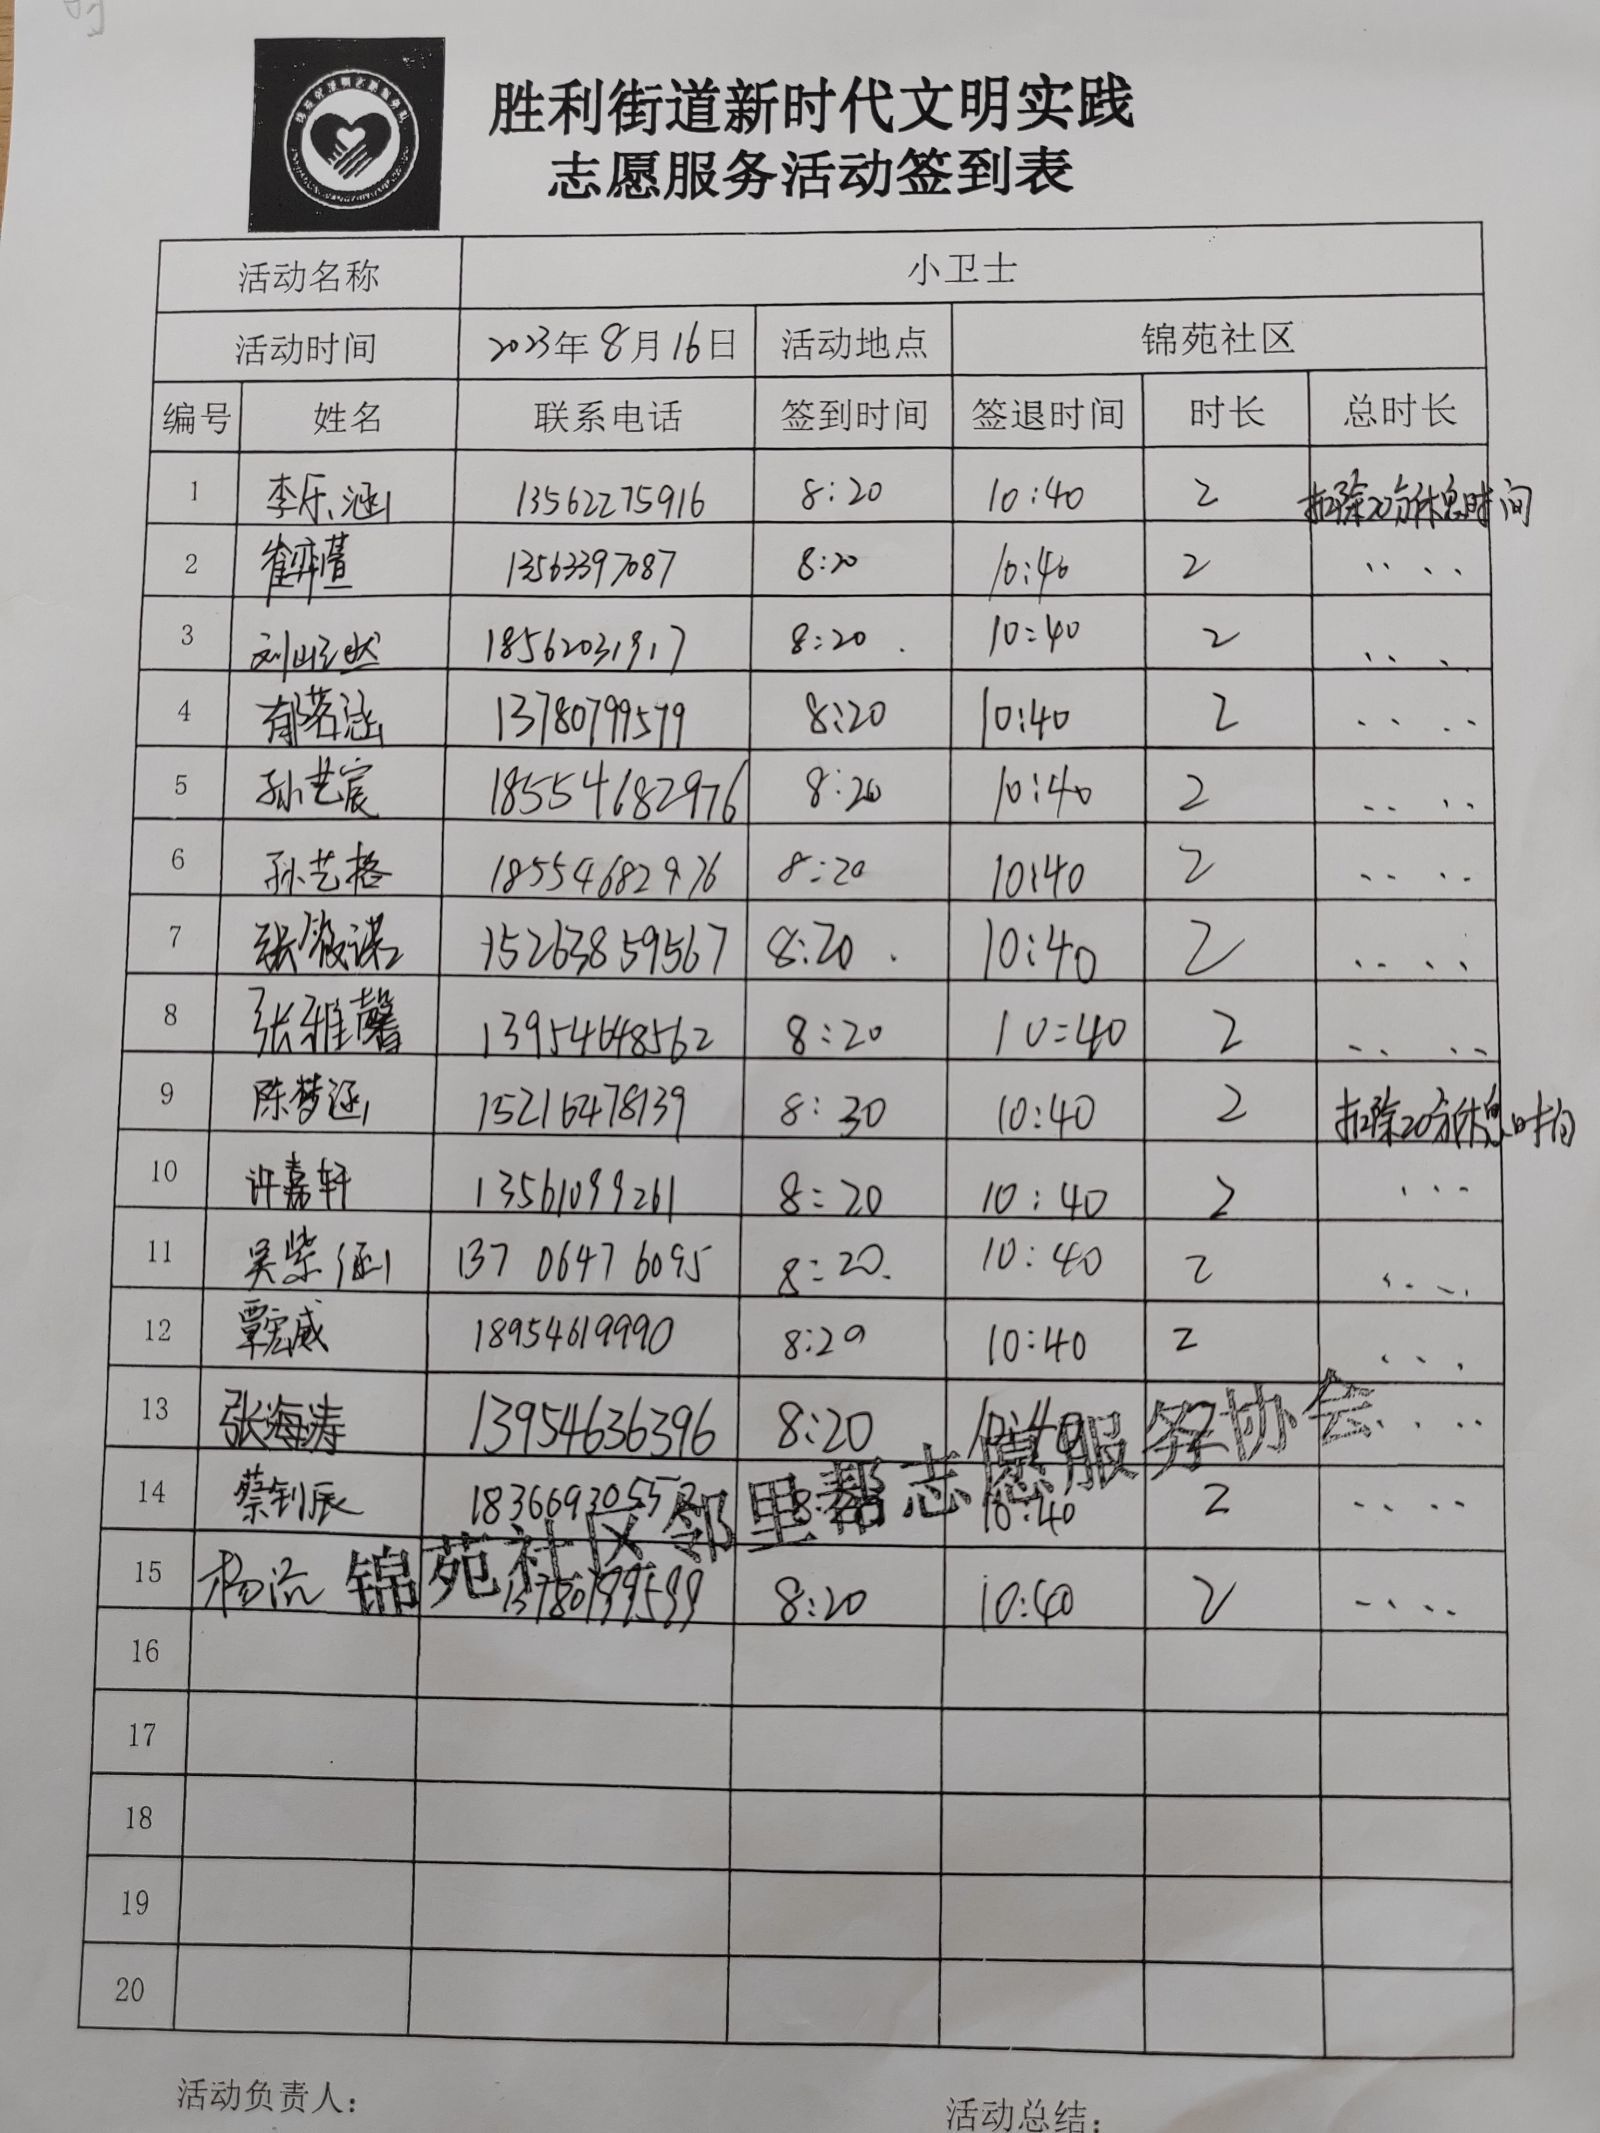 胜利街道新时代文明实践
志愿服务活动签到表
活动名称 小卫士
活动时间 2023年8月16日 活动地点 锦苑社区
编号 姓名 联系电话 签到时间 签退时间 时长 总时长
1 李乐涵 13562275916 8:20 10:40 2 扣除20分休息时间
2 崔弈萱 13563397087 8:20 10:40 2
3 刘屹然 18562031917 8:20 10:40 2
4 郁茗涵 13780799579 8:20 10:40 2
5 孙艺宸 18554682976 8:20 10:40 2
6 孙艺格 18554682976 8:20 10:40 2
7 张筱谋 15263859567 8:20 10:40 2
8 张雅馨 13954648562 8:20 10:40 2
9 陈梦涵 15216478139 8:30 10:40 2 扣除20分休息时间
10 许嘉轩 13561099261 8:20 10:40 2
11 吴紫涵 13706476095 8:20 10:40 2
12 覃宏威 18954619990 8:20 10:40 2
13 张海涛 13954636396 8:20 10:40 2
14 蔡钊辰 10:40 2
15 杨沉 8:20 10:40 2
锦苑社区邻里帮志愿服务协会
16
17
18
19
20
活动负责人: 活动总结: